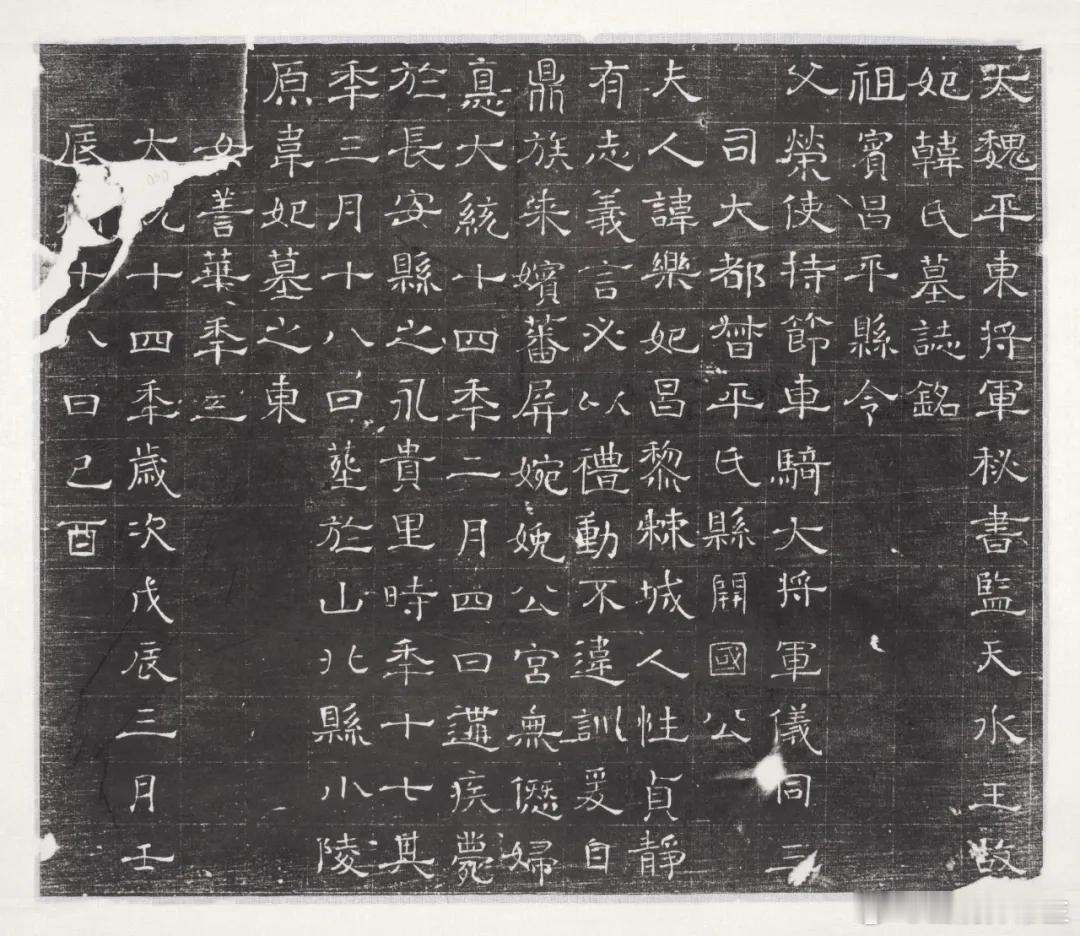 大魏平東将軍秘書監天水王故
妃韓氏墓誌銘
祖賓昌平縣令
父榮使持節車騎大将軍儀同三
司大都督平氏縣開國公
夫人諱樂妃昌黎棘城人性貞靜
有志義言必以禮動不違訓爰自
鼎族来嬪蕃屏婉娩公宮無僁婦
悳大統十四秊二月四日遘疾薨
於長安縣之永貴里時秊十七其
秊三月十八日葬於山北縣小陵
原韋妃墓之東
女譱華秊
大統十四秊歲次戊辰三月壬
辰朔十八日己酉